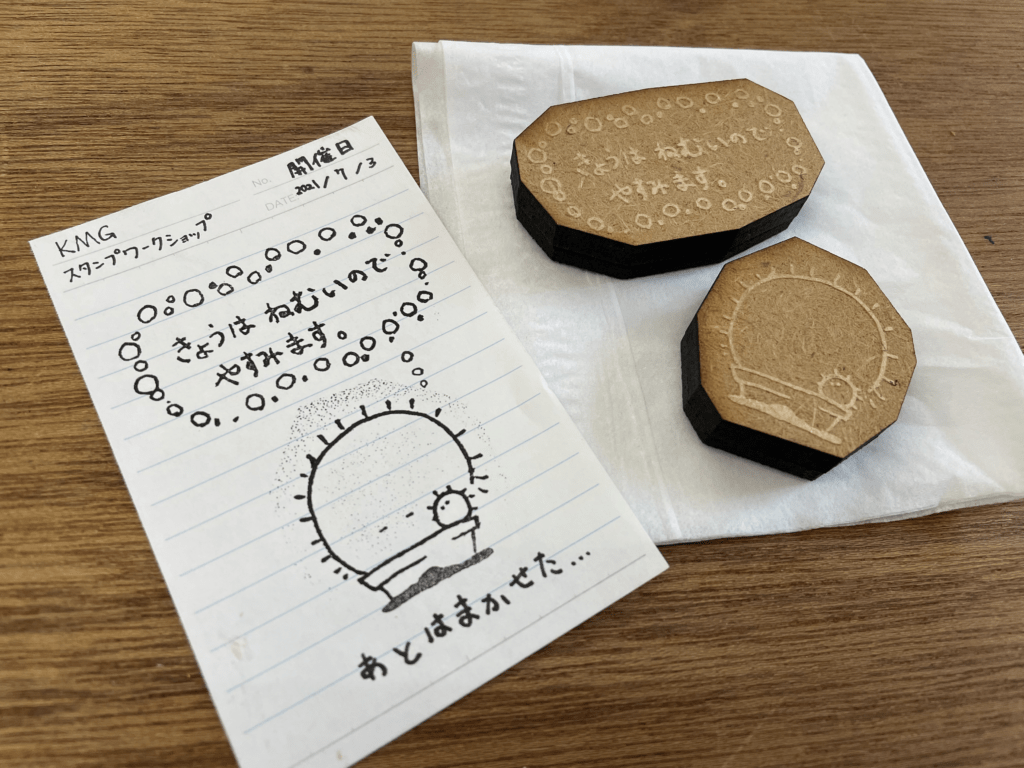 No. 開催日
DATE 2021/7/3
KMG
スタンプワークショップ
きょうは ねむいので
やすみます。
あとはまかせた...
きょうは ねむいので
やすみます。